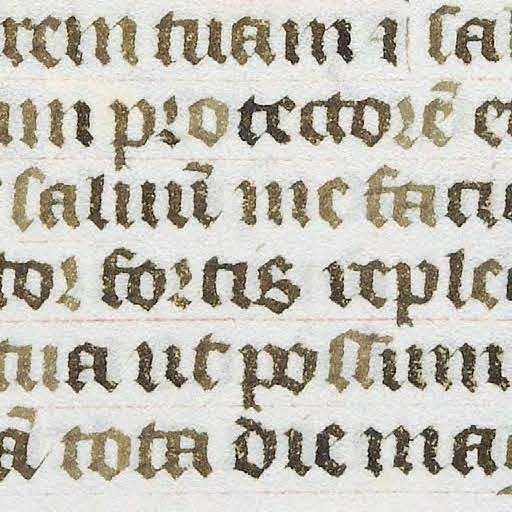 rem tuam ⁊ sal
um protectorē et
saluū me facia
tor fortis repleat
tua ut possum
ā tota die mag